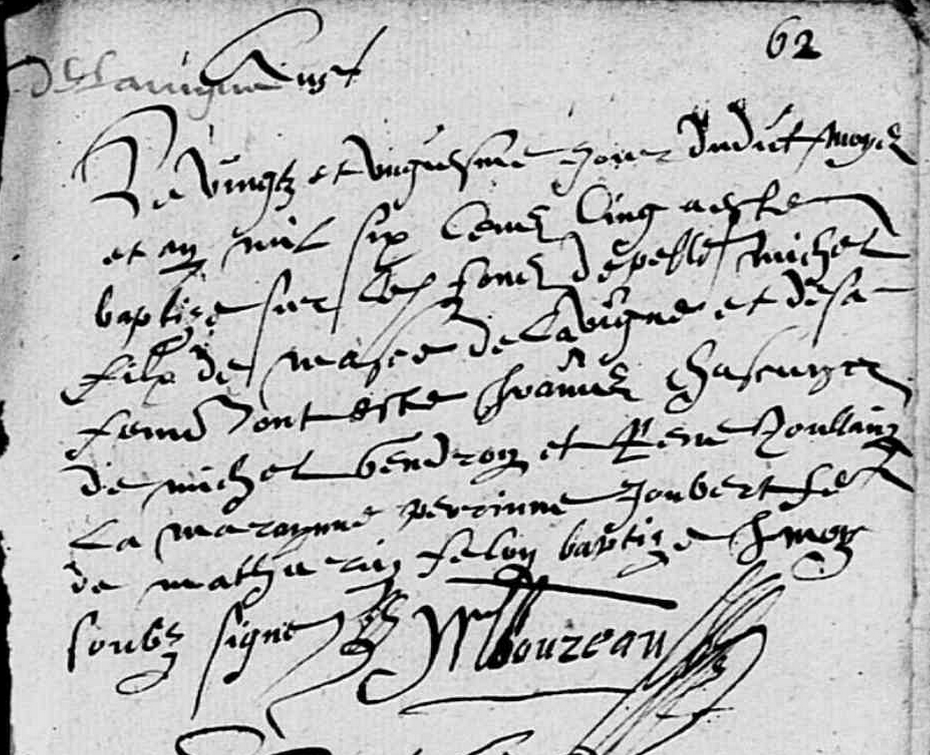 62
delavigne
Le vingtz et ungniesme jour dudict moys
et an mil six cens cinq a este
baptize sur les fons de pelle michel
filx de mase delavigne et de sa
femme ont este
de michel Gendron et Rene Poullain
La marainne perrinne Joubert fe
de mathurin felon baptize moy
soubz signe MBouzeau